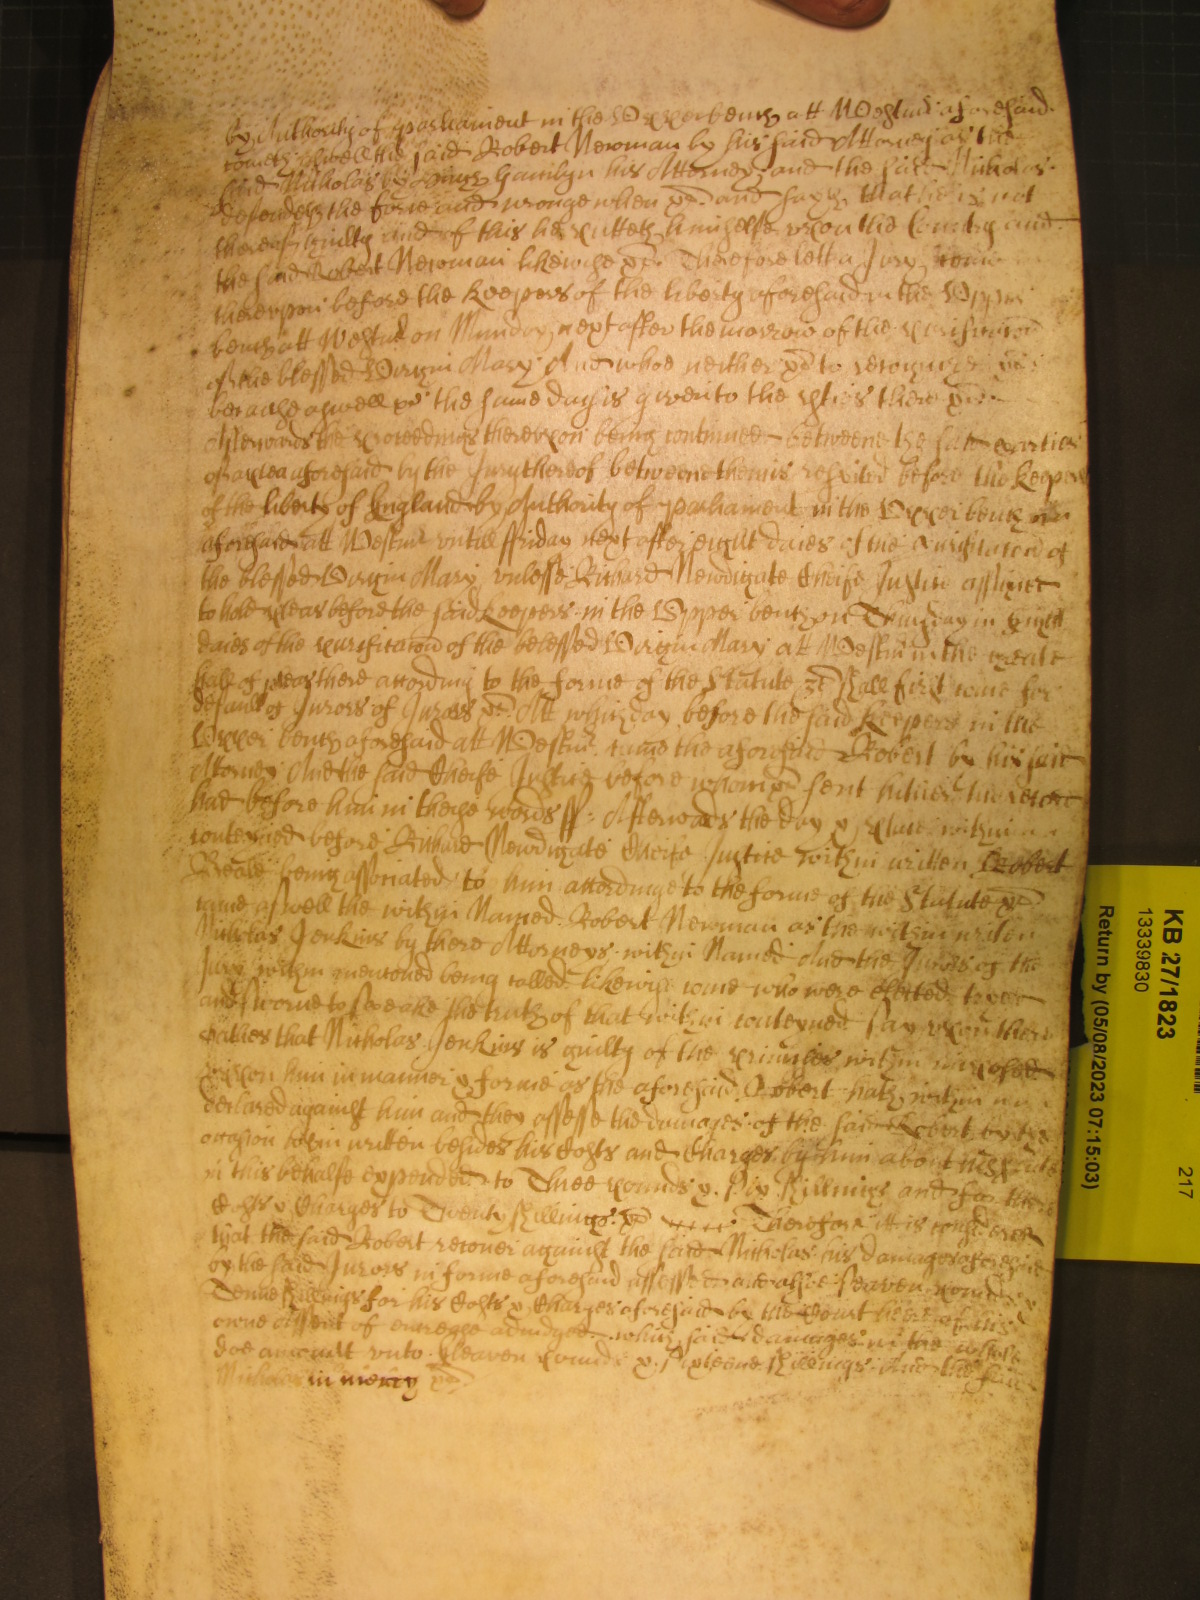 by Authority of parliament in the Upper bench att Westmr aforesaid
cometh aswell the said Robert Newman by his said Attorney as the
said Nicholas by Hamlyn his Attorney and the said Nicholas
defendeth the force and wronge when &c and sayth that he is not
thereof guilty and of this he putteth himselfe upon the Country and
the said Robert Newman likewise &c Therefore lett a Jury come
thereupon before the Keepers of the liberty aforesaid in the Upper
bench att Westmr on Munday next after the morrow of the purificacon
of the blessed Virgin Mary And whoe neither &c to recognize &c
because aswell &c the same day is given to the pties there &c
Afterwards the proceedings thereupon being continued betweene the said parties
of a plea aforesaid by the Jury thereof betweene them is respited before the Keepers
of the liberty of England by Authority of parliament in the Upper bench
aforesaid att Westmr untill ffriday next after eight daies of the purificacon of
the blessed Virgin Mary unlesse Richard Newdigate Cheife Justice assigned
to hold pleas before the said keepers in the Upper bench on Thursday in eight
daies of the purificacon of the belessed Virgin Mary att Westmr in the greate
hall of pleas there according to the forme of the Statute &c shall first come for
default of Jurors of Jurors &c Att which day before the said Keepers in the
Upper bench aforesaid att Westmr came the aforesaid Robert by his said
Attorney And the said Cheife Justice before whom &c sent hither the record
had before him in these words ss Afterwards the day & place within
conteyned before Richard Newdigate Cheife Justice within written Robert
Beale being associated to him accordinge to the forme of the Statute &c
came aswell the within Named Robert Newman as the within written
Nicholas Jenkins by there Attorneys within Named And the Jurors of the
Jury within menconed being called likewise come who were elected tryed
and sworne to speake the truth of that within conteyned say upon there
oathes that Nicholas Jenkins is guilty of the within imposed
upon him in manner & forme as the aforesaid Robert hath within
declared against him and they assesse the damages of the said Robert by the
occasion within written besides his Costs and Charges by him about his suite
in this behalfe expended to Three pounds & Six shillings and for those
Costs & Charges to Twenty shillings &c Therefore itt is considered
that the said Robert recover against the said Nicholas his damages aforesaid
by the said Jurors in forme aforesaid assessed and alsoe seaven pounds &
Tenne shillings for his Costs & Charges aforesaid by the Court heere of his
owne assent of encrease adiudged which said damages in the whole
doe amount unto Eleaven pounds & Sixteene shillings And the said
Nicholas in mercy &c
KB 27/1823
13339830
217
Return by (05/08/2023 07:15:03)